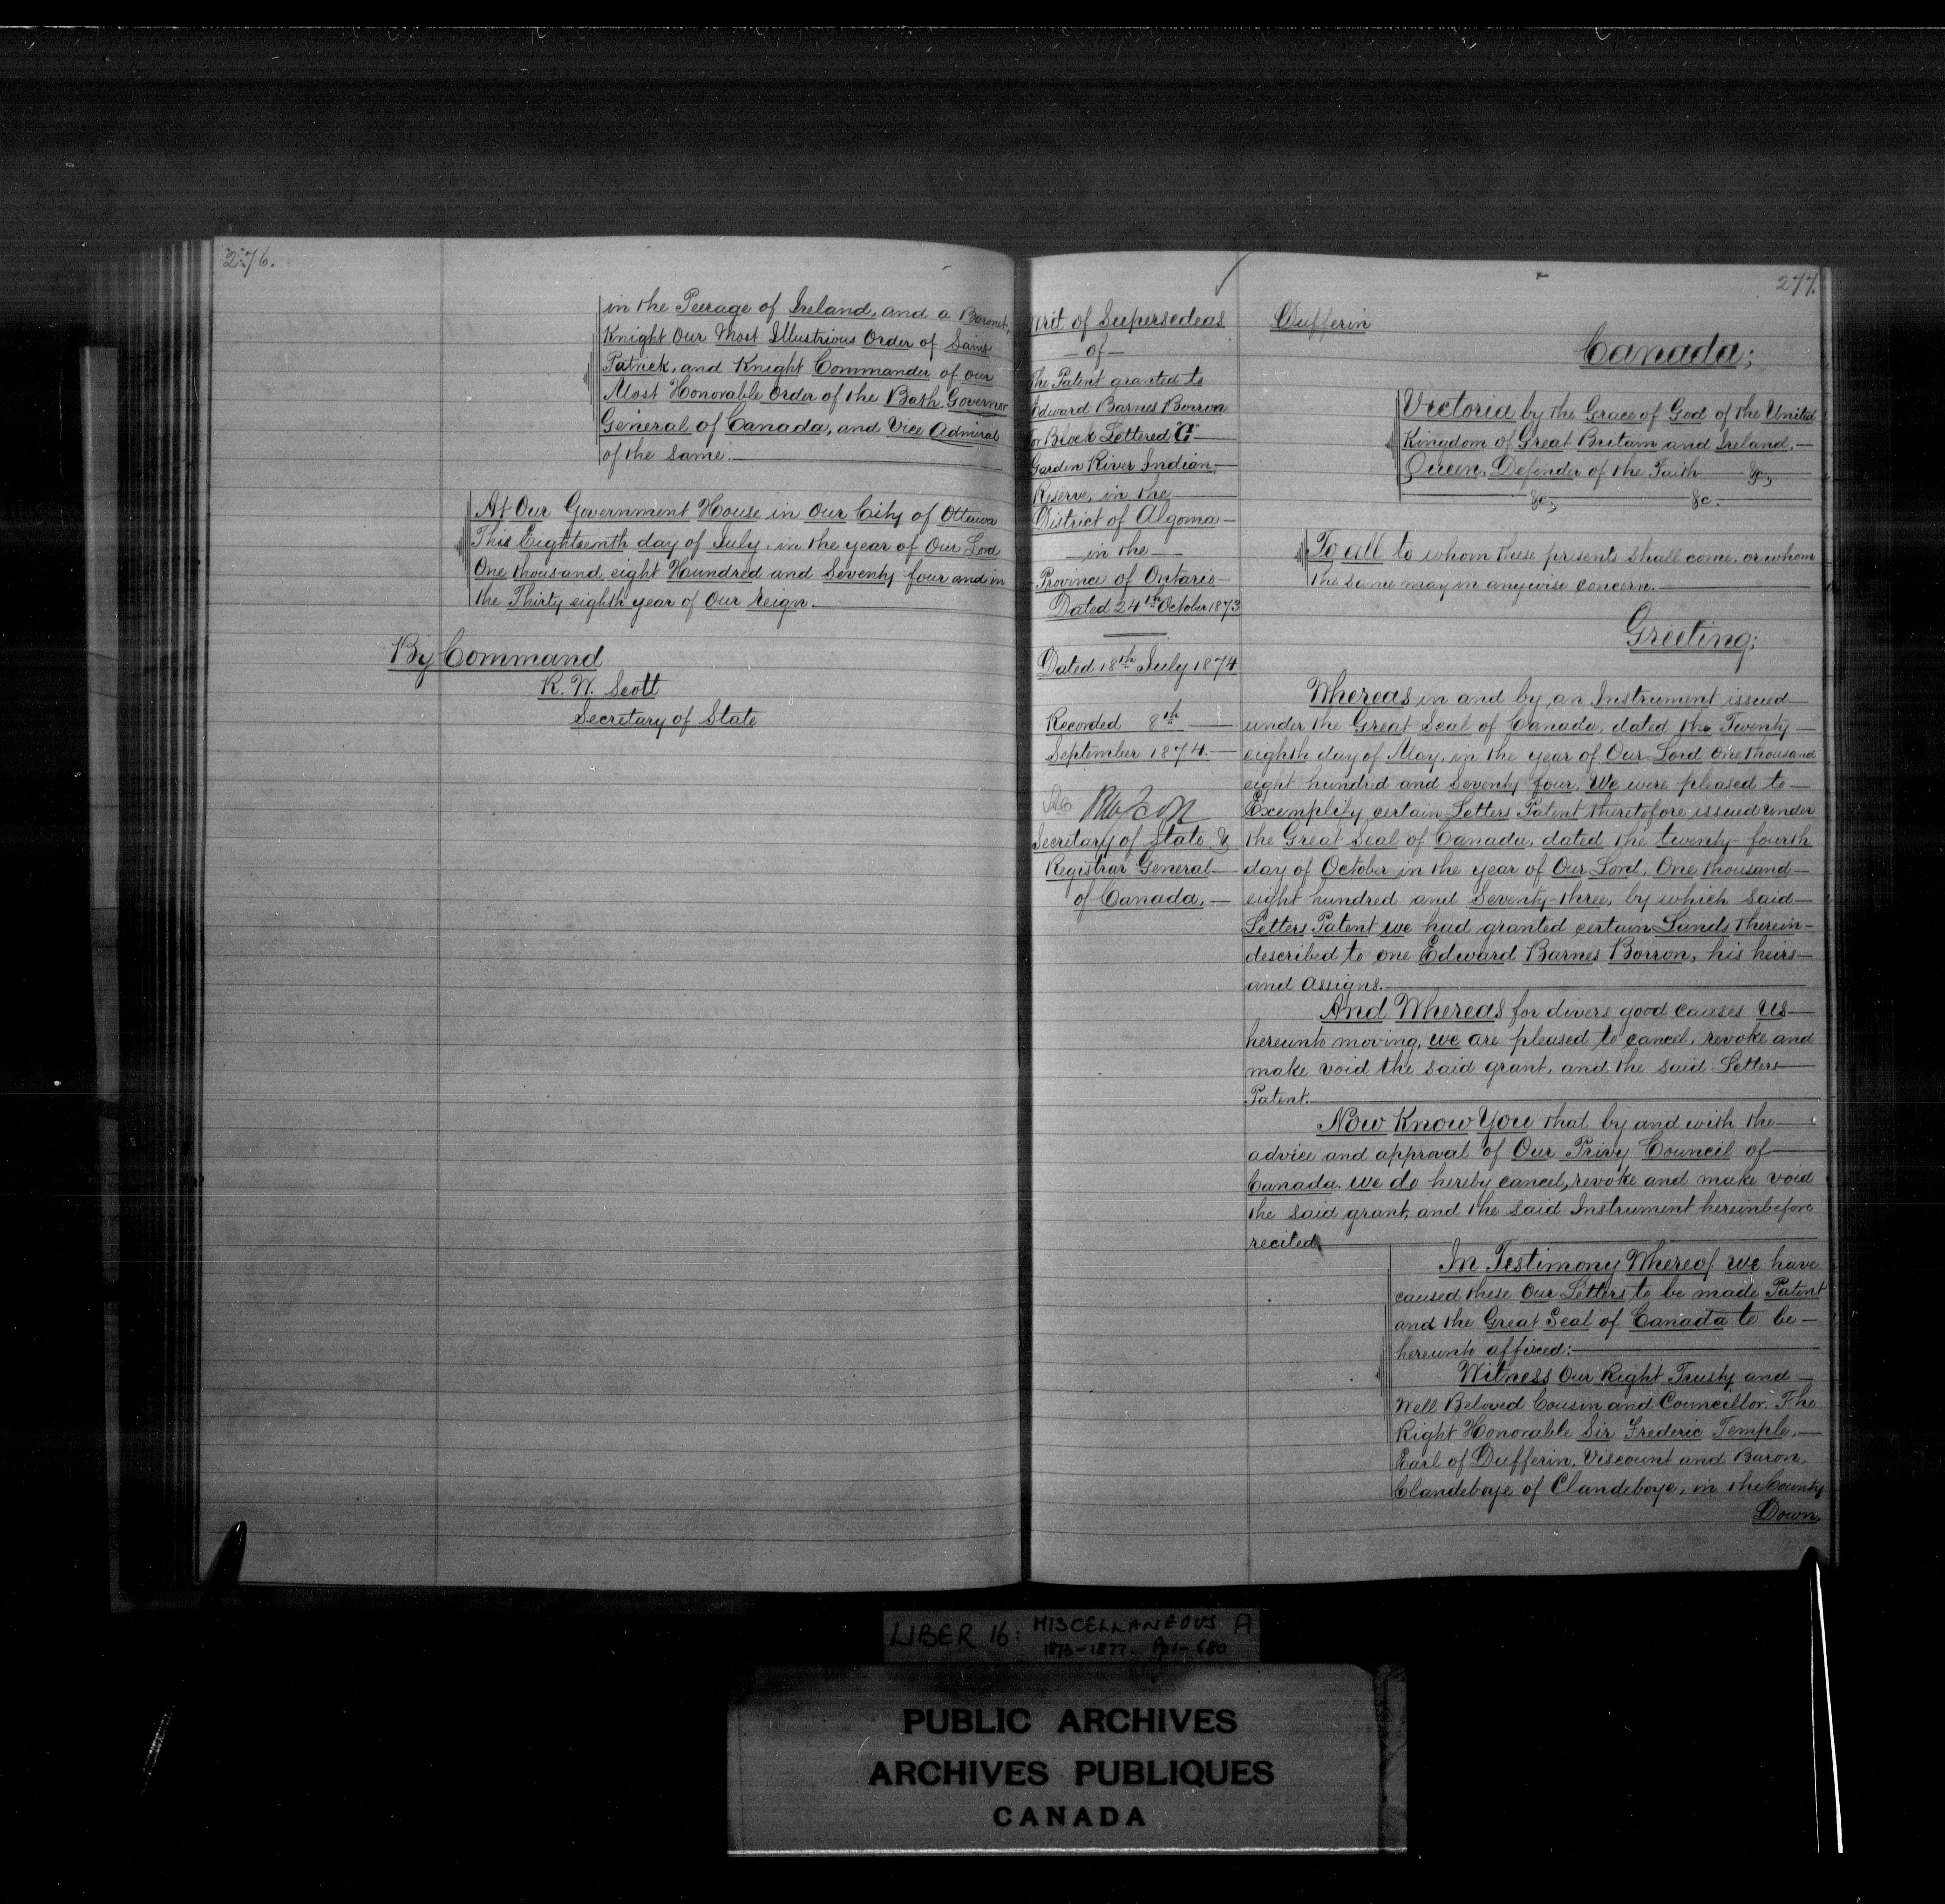 276.
in the Peerage of Ireland, and a Baronet,
Knight Our Most Illustrious Order of Saint
Patrick, and Knight Commander of our
Most Honorable Order of the Bath Governor
General of Canada, and Vice Admiral
of the same.
At Our Government House in Our City of Ottawa
This Eighteenth day of July, in the year of Our Lord
One thousand eight Hundred and Seventy four and in
the Thirty eighth year of Our reign.
By Command
R. W. Scott
Secretary of State
277.
Writ of Supersedeas
— of —
the Patent granted to
Edward Barnes Borron
for Block Lettered "G"
Garden River Indian
Reserve, in the
District of Algoma
in the
Province of Ontario
Dated 24th October 1873
Dated 18th July 1874
Recorded 8th
September 1874.
Secretary of State &
Registrar General
of Canada.
Dufferin
Canada;
Victoria by the Grace of God of the United
Kingdom of Great Britain and Ireland,
Queen, Defender of the Faith &c,
&c, &c.
To all to whom these presents shall come, or whom
the same may in anywise concern.
Greeting;
Whereas in and by an Instrument issued
under the Great Seal of Canada, dated the Twenty
eighth day of May, in the year of Our Lord One thousand
eight hundred and Seventy four, We were pleased to
Exemplify certain Letters Patent theretofore issued under
the Great Seal of Canada, dated the twenty-fourth
day of October in the year of Our Lord, One thousand
eight hundred and Seventy-three, by which said
Letters Patent we had granted certain Lands therein
described to one Edward Barnes Borron, his heirs
and assigns.
And Whereas for divers good causes Us
hereunto moving, we are pleased to cancel, revoke and
make void the said grant, and the said Letters
Patent.
Now Know You that by and with the
advice and approval of Our Privy Council of
Canada, we do hereby cancel, revoke and make void
the said grant, and the said Instrument hereinbefore
recited.
In Testimony Whereof we have
caused these Our Letters to be made Patent
and the Great Seal of Canada to be
hereunto affixed:
Witness Our Right Trusty and
Well Beloved Cousin and Councillor, The
Right Honorable Sir Frederic Temple,
Earl of Dufferin, Viscount and Baron,
Clandeboye of Clandeboye, in the County
Down
LIBER 16: MISCELLANEOUS A
1873-1877. Pp 1-680
PUBLIC ARCHIVES
ARCHIVES PUBLIQUES
CANADA